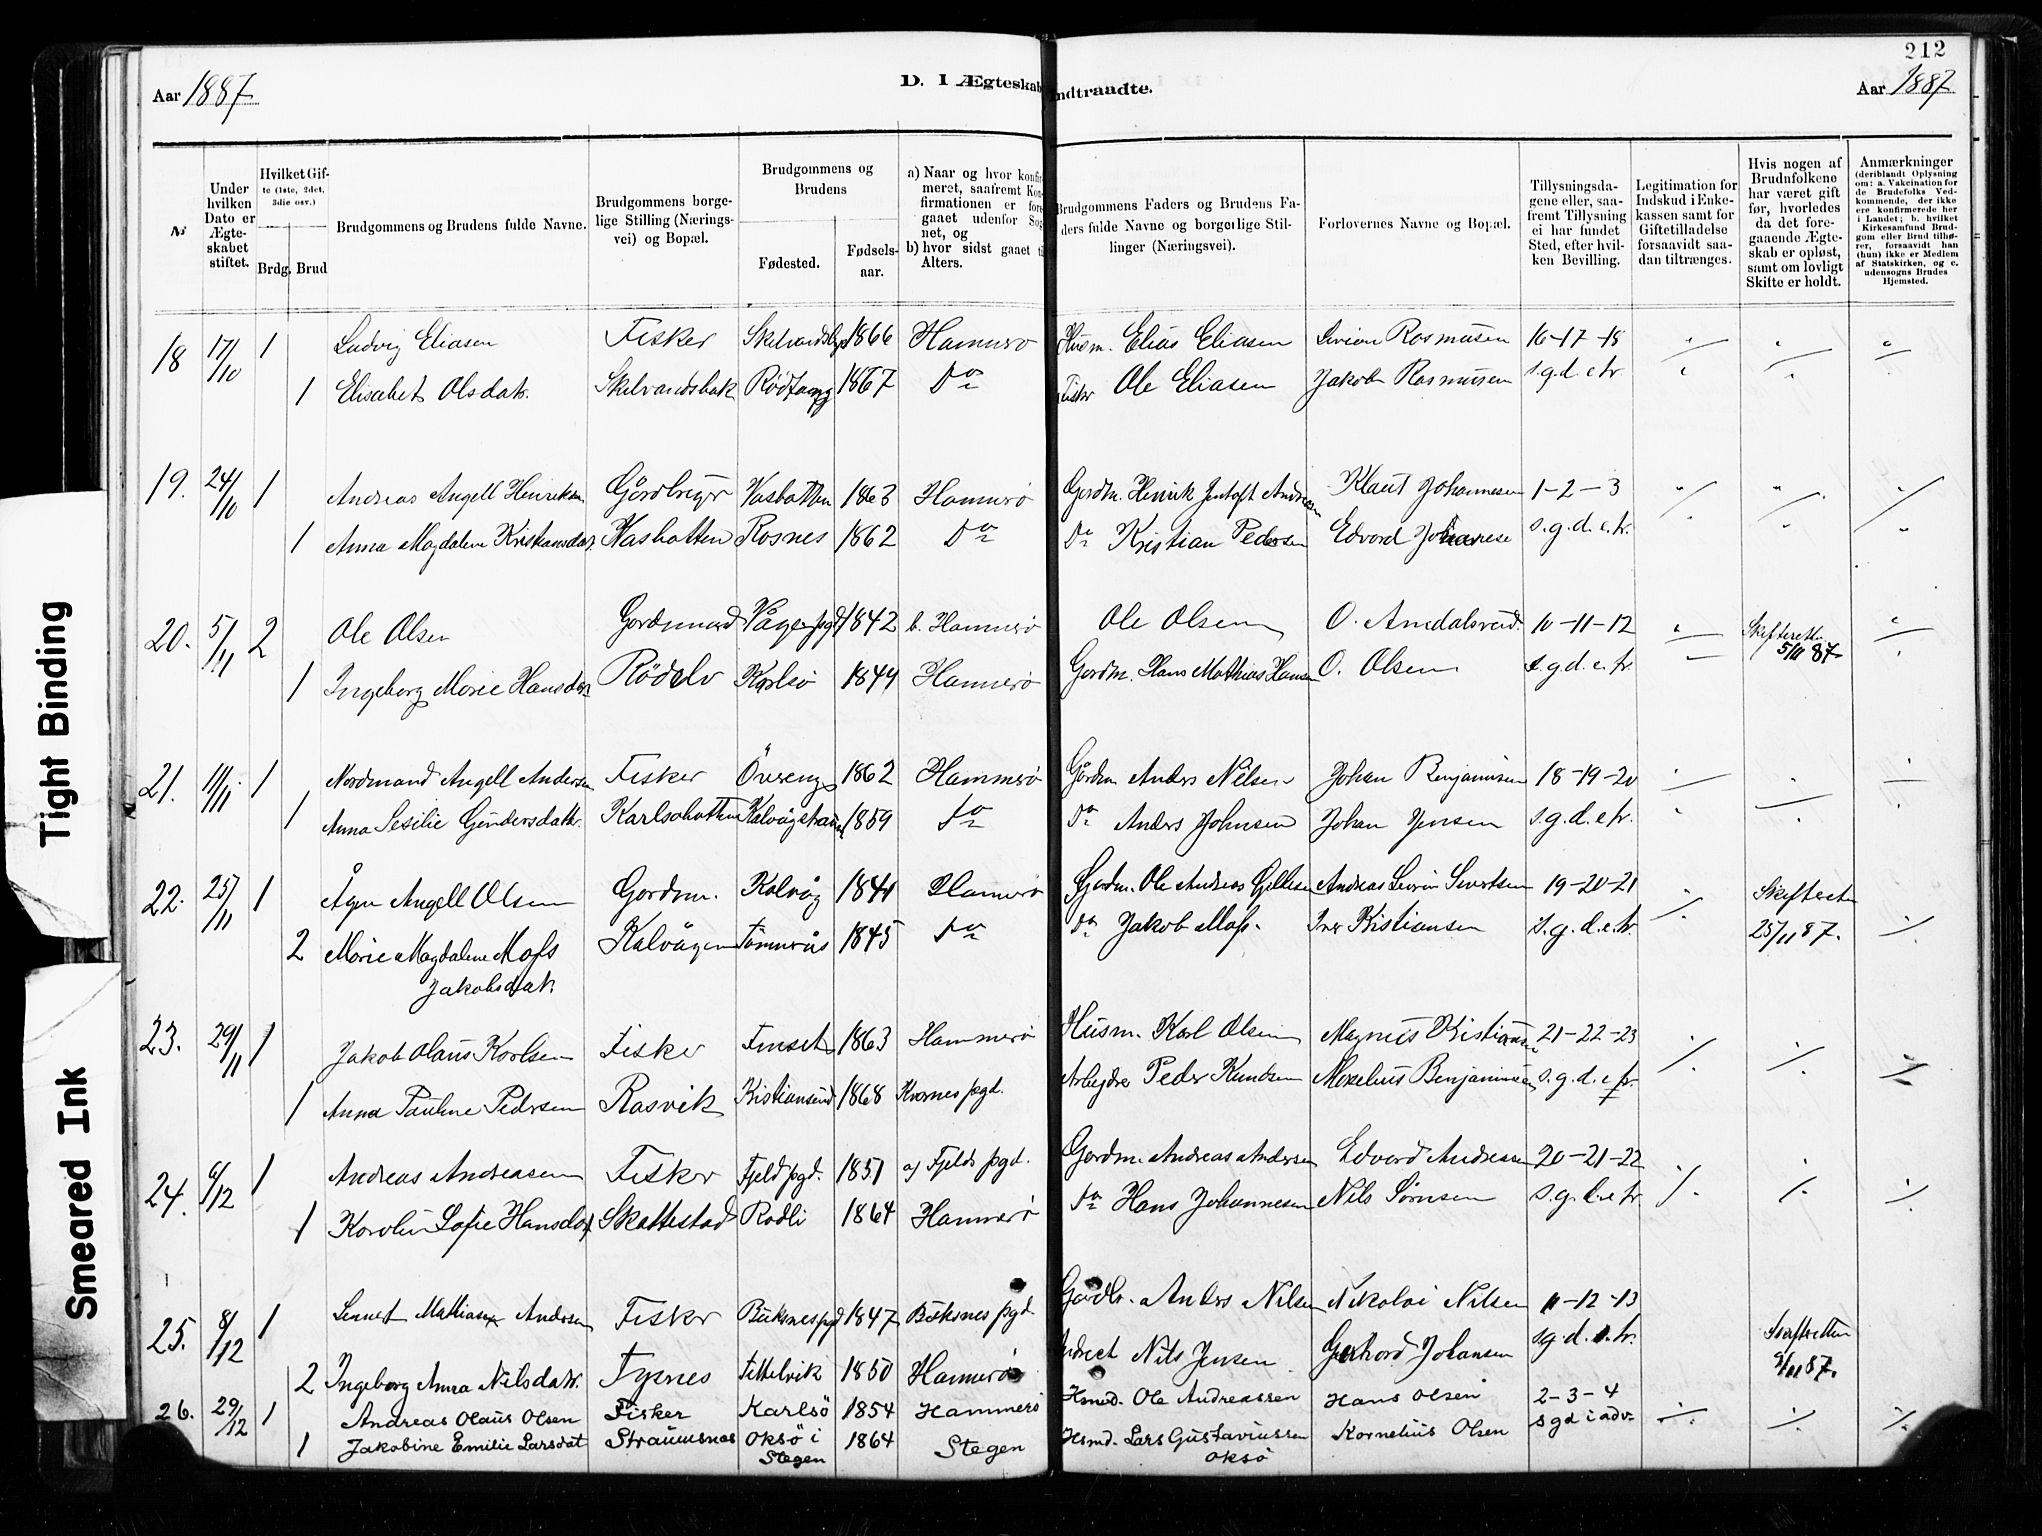 212
Aar 1887
D. I Ægteskab indtraadte.
Aar 1887
№
Under hvilken Dato er Ægteskabet stiftet.
Hvilket Gifte (1ste, 2det, 3die osv.)
Brdg. Brud
Brudgommens og Brudens fulde Navne.
Brudgommens borgelige Stilling (Næringsvei) og Bopæl.
Brudgommens og Brudens
Fødested.
Fødselsaar.
a) Naar og hvor konfirmeret, saafremt Konfirmationen er foregaaet udenfor Sognet, og
b) hvor sidst gaaet til Alters.
Brudgommens Faders og Brudens Faders fulde Navne og borgerlige Stillinger (Næringsvei).
Forlovernes Navne og Bopæl.
Tillysningsdagene eller, saafremt Tillysning ei har fundet Sted, efter hvilken Bevilling.
Legitimation for Indskud i Enkekassen samt for Giftetilladelse forsaavidt saadan tiltrænges.
Hvis nogen af Brudnfolkene har været gift før, hvorledes da det foregaaende Ægteskab er opløst, samt om lovligt Skifte er holdt.
Anmærkninger (deriblandt Oplysning om: a. Vakcination for de Brudefolks Vedkommende, der ikke ere konfirmerede her i Landet; b. hvilket Kirkesamfund Brudgom eller Brud tilhører, forsaavidt han (hun) ikke er Medlem af Statskirken, og c. udensogns Brudes Hjemsted.
18 17/10 1 Ludvig Eliasen Fisker 1866 Hamerø Husm. Elias Eliasen Rasmusen 16-17-18
1 Elisabet Olsdatr. Skilvandsbak 1867 Do Fisker Ole Eliasen Jakob Rasmusen s.g.d.e.tr.
19. 24/10 1 Andreas Angell Henriksen Gårdbruger Hasbatten 1863 Hamerø Gordm. Henrik Jentoft Andreasen Klaus Johannesen 1-2-3
1 Anna Magdalene Kristiansdatr. Hasbatten Rosnes 1862 Do Do Kristian Pedersen Edvard s.g.d.e.tr.
20. 5/11 2 Ole Olsen Gordmand 1842 b. Hammerø Ole Olsen O. 10-11-12 Skifteretten 5/11 87
1 Ingeborg Marie Hansdatr Rødelv Karlsø 1844 Hamerø Gordm. Hans Mathias Hansen O. Olsen s.g.d.e.tr.
21. 11/11 1 Nordmand Angell Andersen Fisker Øvereng 1862 Hammerø Gårdm Anders Nilsen Johan Benjaminsen 18-19-20
1 Anna Sesilie Karlsøhatten 1859 Do Do Anders Johnsen Johan Jensen s.g.d.e.tr.
22. 25/11 1 Ågn Angell Olsen Gordm. Kalvåg 1844 Hamerø Gordm. Ole Andreas Andreas Sivertsen 19-20-21 Skifteret
2 Marie Magdalene Mafs Kalvågen Tømmerås 1845 Do Do Jakob Mafs. Iver Kristiansen s.g.d.e.tr. 25/11 87.
Jakobsdatr.
23. 29/11 1 Jakob Olaus Karlsen Fisker Finset 1863 Hammerø Husm. Karl Olsen Magnus Kristiansen 21-22-23
1 Anna Pauline Pedersen Rasvik Kristiansund 1868 Kvernes pgd. Arbejder Peder Knudsen Benjaminsen s.g.d.e.tr.
24. 6/12 1 Andreas Andreasen Fisker Fjeld pgd. 1851 a) Fjelds pgd. Gordm. Andreas Andersen Edvard Andreassen 20-21-22
1 Karolin Sofie Hansdat Skattestad Rodli 1864 Hammerø Do Hans Johannesen Nils Sørensen s.g.d.e.tr.
25. 8/12 1 Mathiasen Andersen Fisker Buksnes pgd 1847 Buksnes pgd. Gordbr. Anders Nilsen Nikolai Nilsen 11-12-13
2 Ingeborg Anna Nilsdatr. Fypnes Fittelvik 1850 Hamerø Nils Jensen Gerhard Johansen s.g.d.e.tr. Skifteretten 9/11 87.
26. 29/12 1 Andreas Olaus Olsen Fisker Karlsø 1854 Hammerø Hsmd. Ole Andreassen Hans Olsen 2-3-4
1 Jakobine Emilie Larsdat Straumsnes Oksø i 1864 Stegen Hsmd. Lars Gustaviussen Kornelius Olsen sgd i adv.
Stegen Oksø
Tight Binding
Smeared Ink